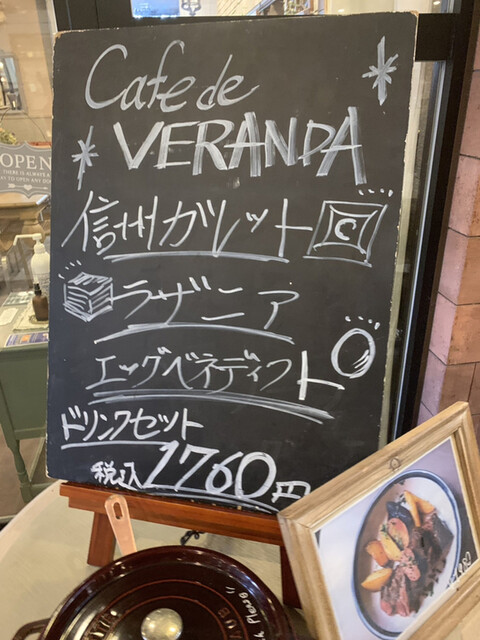 Cafe de
VERANDA
信州ガレット
ラザニア
エッグベネディクト
ドリンクセット
税込1760円
OPEN
THERE IS ALWAYS A
Please